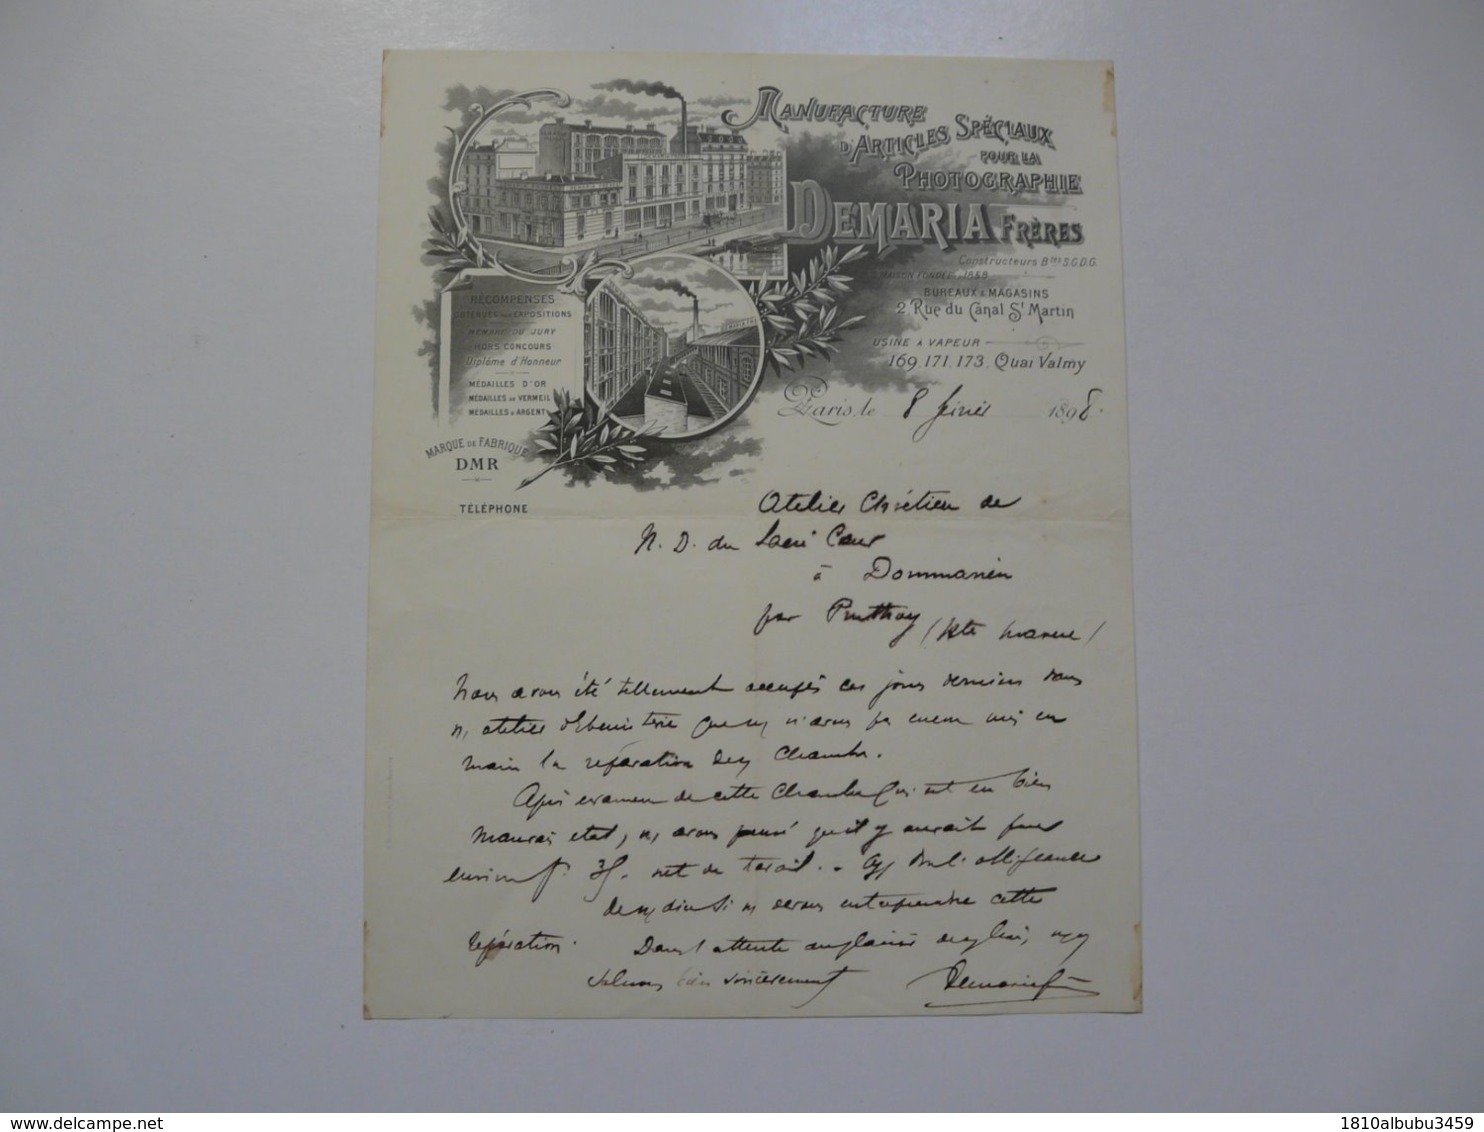 MANUFACTURE
D'ARTICLES SPÉCIAUX
POUR LA
PHOTOGRAPHIE
DEMARIA FRÈRES
Constructeurs Btés S.G.D.G.
MAISON FONDÉE 1858
BUREAUX & MAGASINS
2 Rue du Canal St Martin
USINE À VAPEUR
169, 171, 173. Quai Valmy
Paris, le 8 février 1898.
RÉCOMPENSES
OBTENUES AUX EXPOSITIONS
MEMBRE DU JURY
HORS CONCOURS
Diplôme d'Honneur
MÉDAILLES D'OR
MÉDAILLES DE VERMEIL
MÉDAILLES D'ARGENT
MARQUE DE FABRIQUE
DMR
TÉLÉPHONE
Atelier Chrétien de
N. D. du Sacré Cœur
à Dommarien
par Prauthoy (Hte Marne)
Nous avons été tellement occupés ces jours derniers dans
n, atelier d'Ebenisterie que n, n'avons pas encore mis en
main la réparation de v, chambre.
Après examen de cette chambre qui est en bien
mauvais état, n, avons pensé qu'il y aurait pour
environ f. 35. net de travail. - Ayez donc l'obligeance
de n, dire si n, devons entreprendre cette
réparation. Dans l'attente du plaisir de v, lire,
saluons bien sincèrement Demaria f
www.delcampe.net
1810albubu3459